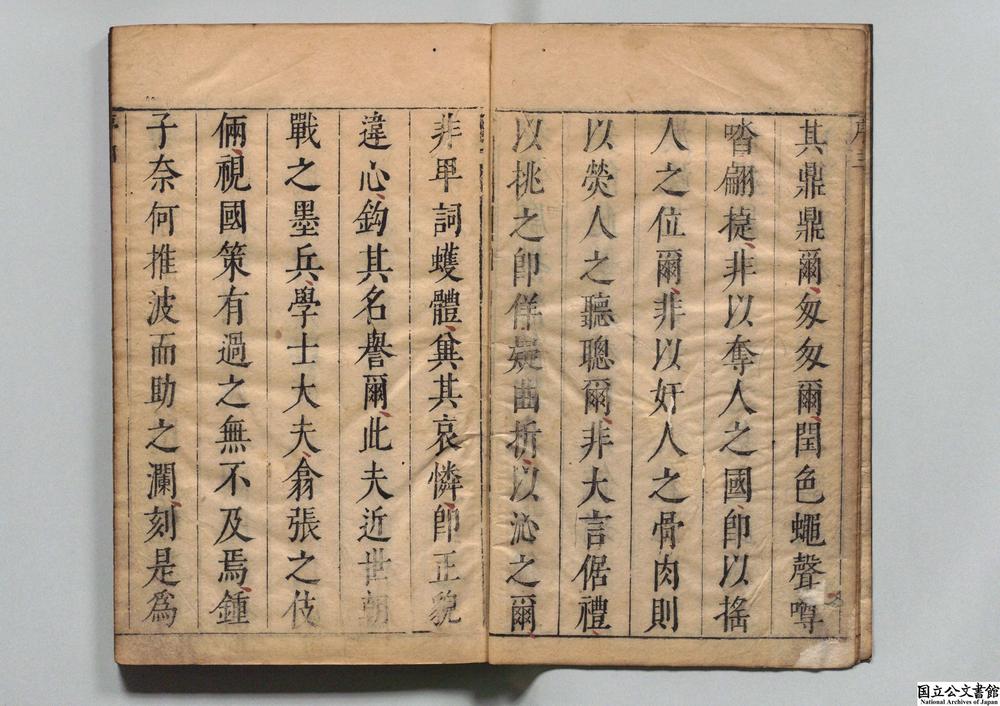 其鼎鼎爾匆匆爾閏色蠅聲噂
喈翩㨗非以奪人之國卽以搖
人之位爾非以奸人之骨肉則
以熒人之聽聰爾非大言倨禮
以挑之卽佯疑曲折以沁之爾
非単詞蠖體兾其哀憐卽正貌
違心鈎其名譽爾此夫近世朝
戰之墨兵學士大夫翕張之伎
倆視國策有過之無不及焉鍾
子奈何推波而助之瀾刻是爲
国立公文書館
National Archives of Japan